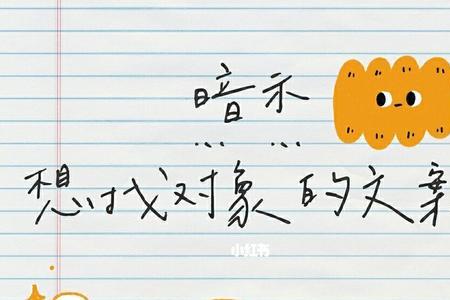 暗示
... ...
想找对象的文案
小红书